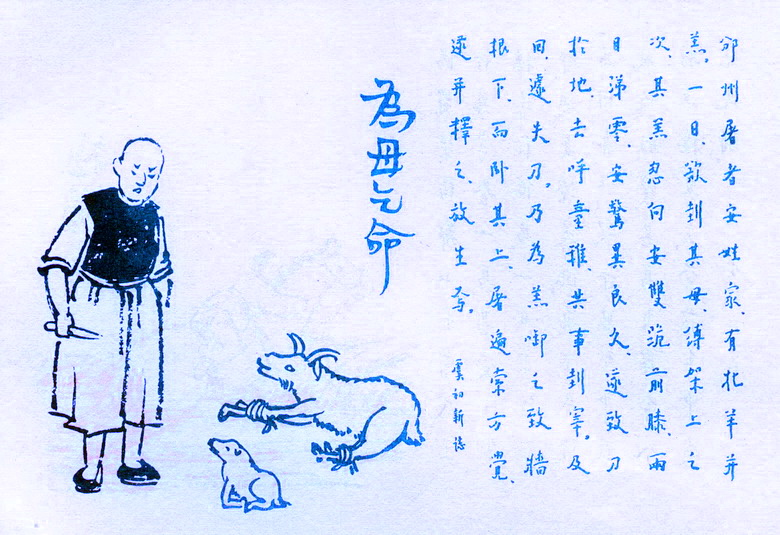 邠州屠者安姓家、有牝羊并
羔。一日、欲刲其母、縛架上之
次、其羔忽向安雙跪前膝、兩
目涕零。安驚異良久、遂致刀
於地、去呼童稚、共事刲宰。及
回、遽失刀。乃為羔啣之、致牆
根下、而卧其上。屠遍索方覺、
遂并釋之、放生焉。
虞初新誌
為母乞命